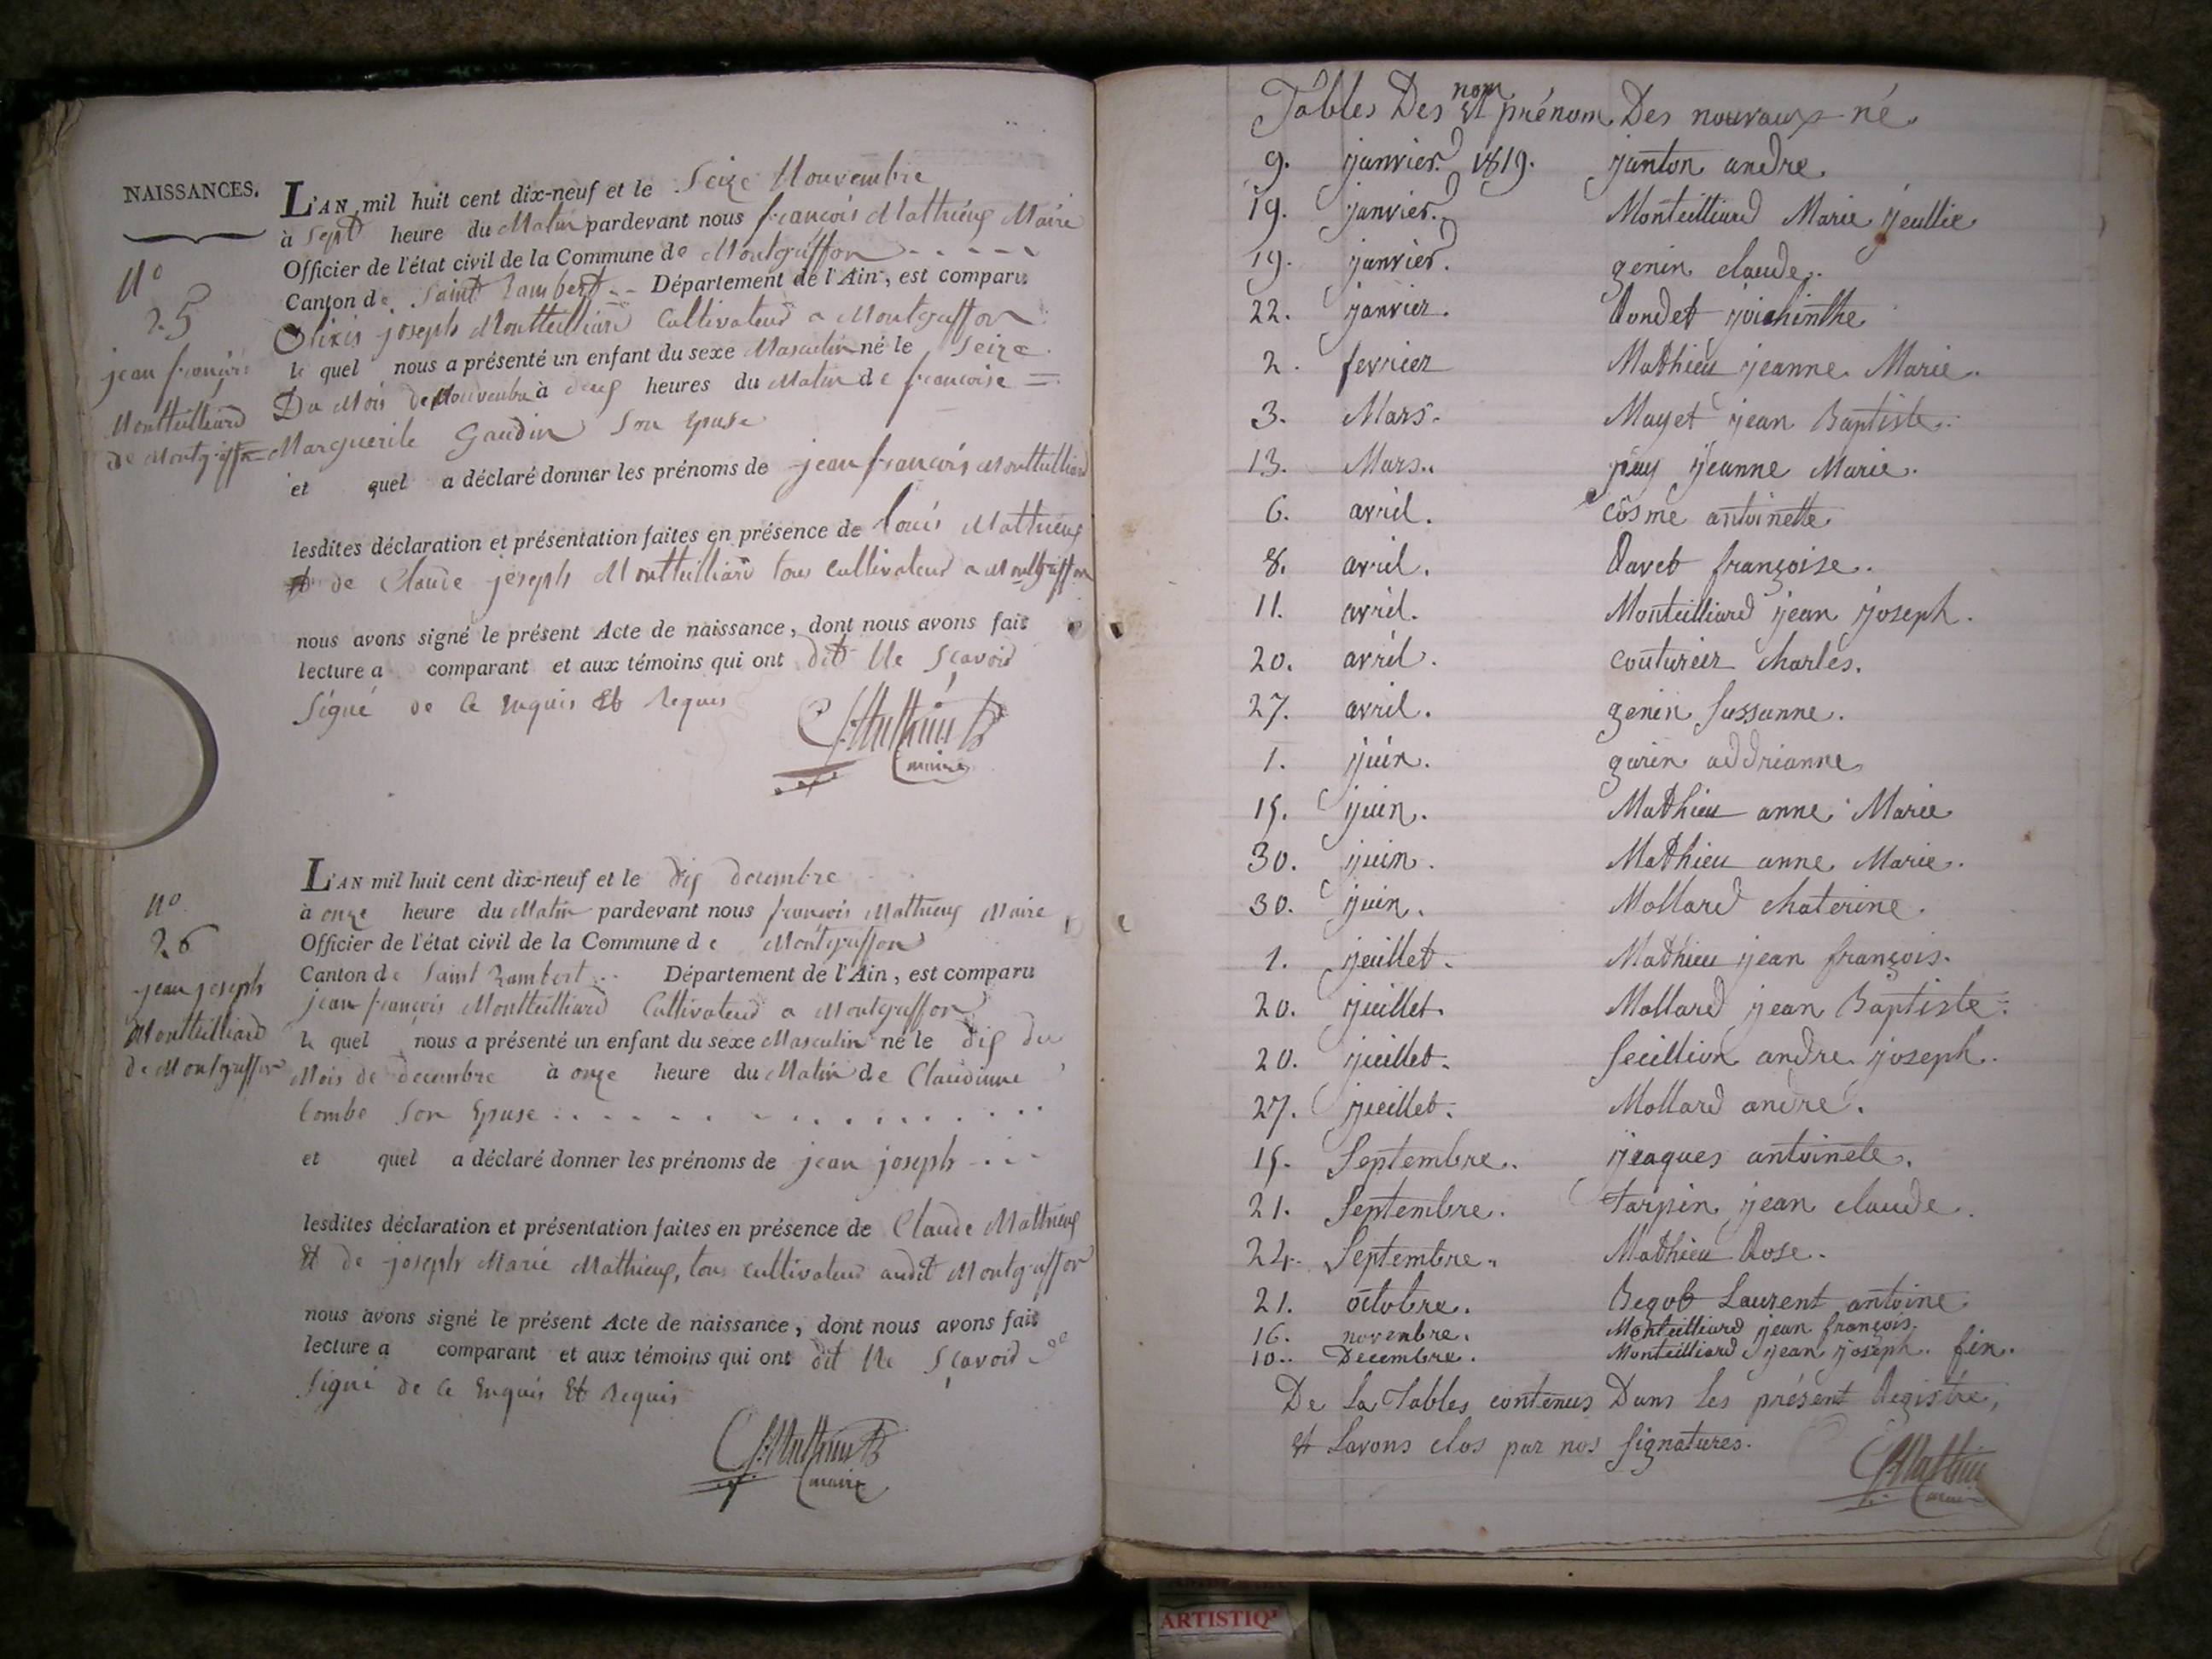 NAISSANCES.
N°
25
jean françois
Montteilliard
de Montgriffon
L'AN mil huit cent dix-neuf et le Seize Nouvembre
à Sept heure du Matin pardevant nous françois Mathieux Maire
Officier de l'état civil de la Commune de Montgriffon
Canton de Saint Rambert Département de l'Ain, est comparu
joseph Montteilliard Cultivateur a Montgriffon
le quel nous a présenté un enfant du sexe Masculin né le Seize
Du Mois de Nouvembre à deux heures du Matin de francoise
Marguerite Gaudin Son Epuse
et quel a déclaré donner les prénoms de jean francois Montteilliard
lesdites déclaration et présentation faites en présence de Louis Mathieux
et de Claude joseph Montteilliard tous cultivateur a Montgriffon
nous avons signé le présent Acte de naissance, dont nous avons fait
lecture a comparant et aux témoins qui ont dit Ne Sçavoir
Signé de Ce Enquis Et Requis
maire
N°
26
jean joseph
Montteilliard
de Montgriffon
L'AN mil huit cent dix-neuf et le dix decembre
à onze heure du Matin pardevant nous françois Mathieux Maire
Officier de l'état civil de la Commune de Montgriffon
Canton de Saint Rambert Département de l'Ain, est comparu
jean françois Montteilliard Cultivateur a Montgriffon
le quel nous a présenté un enfant du sexe Masculin né le dix du
Mois de decembre à onze heure du Matin de Claudinne
Combe Son Epuse
et quel a déclaré donner les prénoms de jean joseph
lesdites déclaration et présentation faites en présence de Claude Mathieux
Et de joseph Marie Mathieux, tous cultivateur audit Montgriffon
nous avons signé le présent Acte de naissance, dont nous avons fait
lecture a comparant et aux témoins qui ont dit Ne Sçavoir
Signé de Ce Enquis Et Requis
maire
Tables Des nom Et prénom Des nouvaux né
9. janvier 1819. janton andre.
19. janvier. Monteilliard Marie jeullie
19. janvier. genin claude.
22. janvier. Rondet joichinthe
2. fevrier Mathieu jeanne Marie.
3. Mars. Mayet jean Baptiste.
13. Mars. puy jeanne Marie.
6. avril. cosme antoinette.
8. avril. Ravet françoise.
11. avril. Monteilliard jean joseph.
20. avril. couturier charles.
27. avril. genin Sussanne.
1. juin. garin addrianne
15. juin. Mathieu anne Marie
30. juin. Mathieu anne Marie.
30. juin. Mollard chaterine.
1. jeuillet. Mathieu jean françois.
20. jeuillet. Mollard jean Baptiste.
20. jeuillet. feuillion andre joseph.
27. jeuillet. Mollard andre.
15. Septembre. jeaques antoinete.
21. Septembre. tarpin jean claude.
24. Septembre. Mathieu Rose.
21. octobre. Begot Laurent antoine
16. novenbre. Monteilliard jean françois.
10. Decembre. Monteilliard jean joseph. fin.
De La Tables contenus Dans Les présent Registre,
et Lavons clos par nos Signatures.
ARTISTIQ